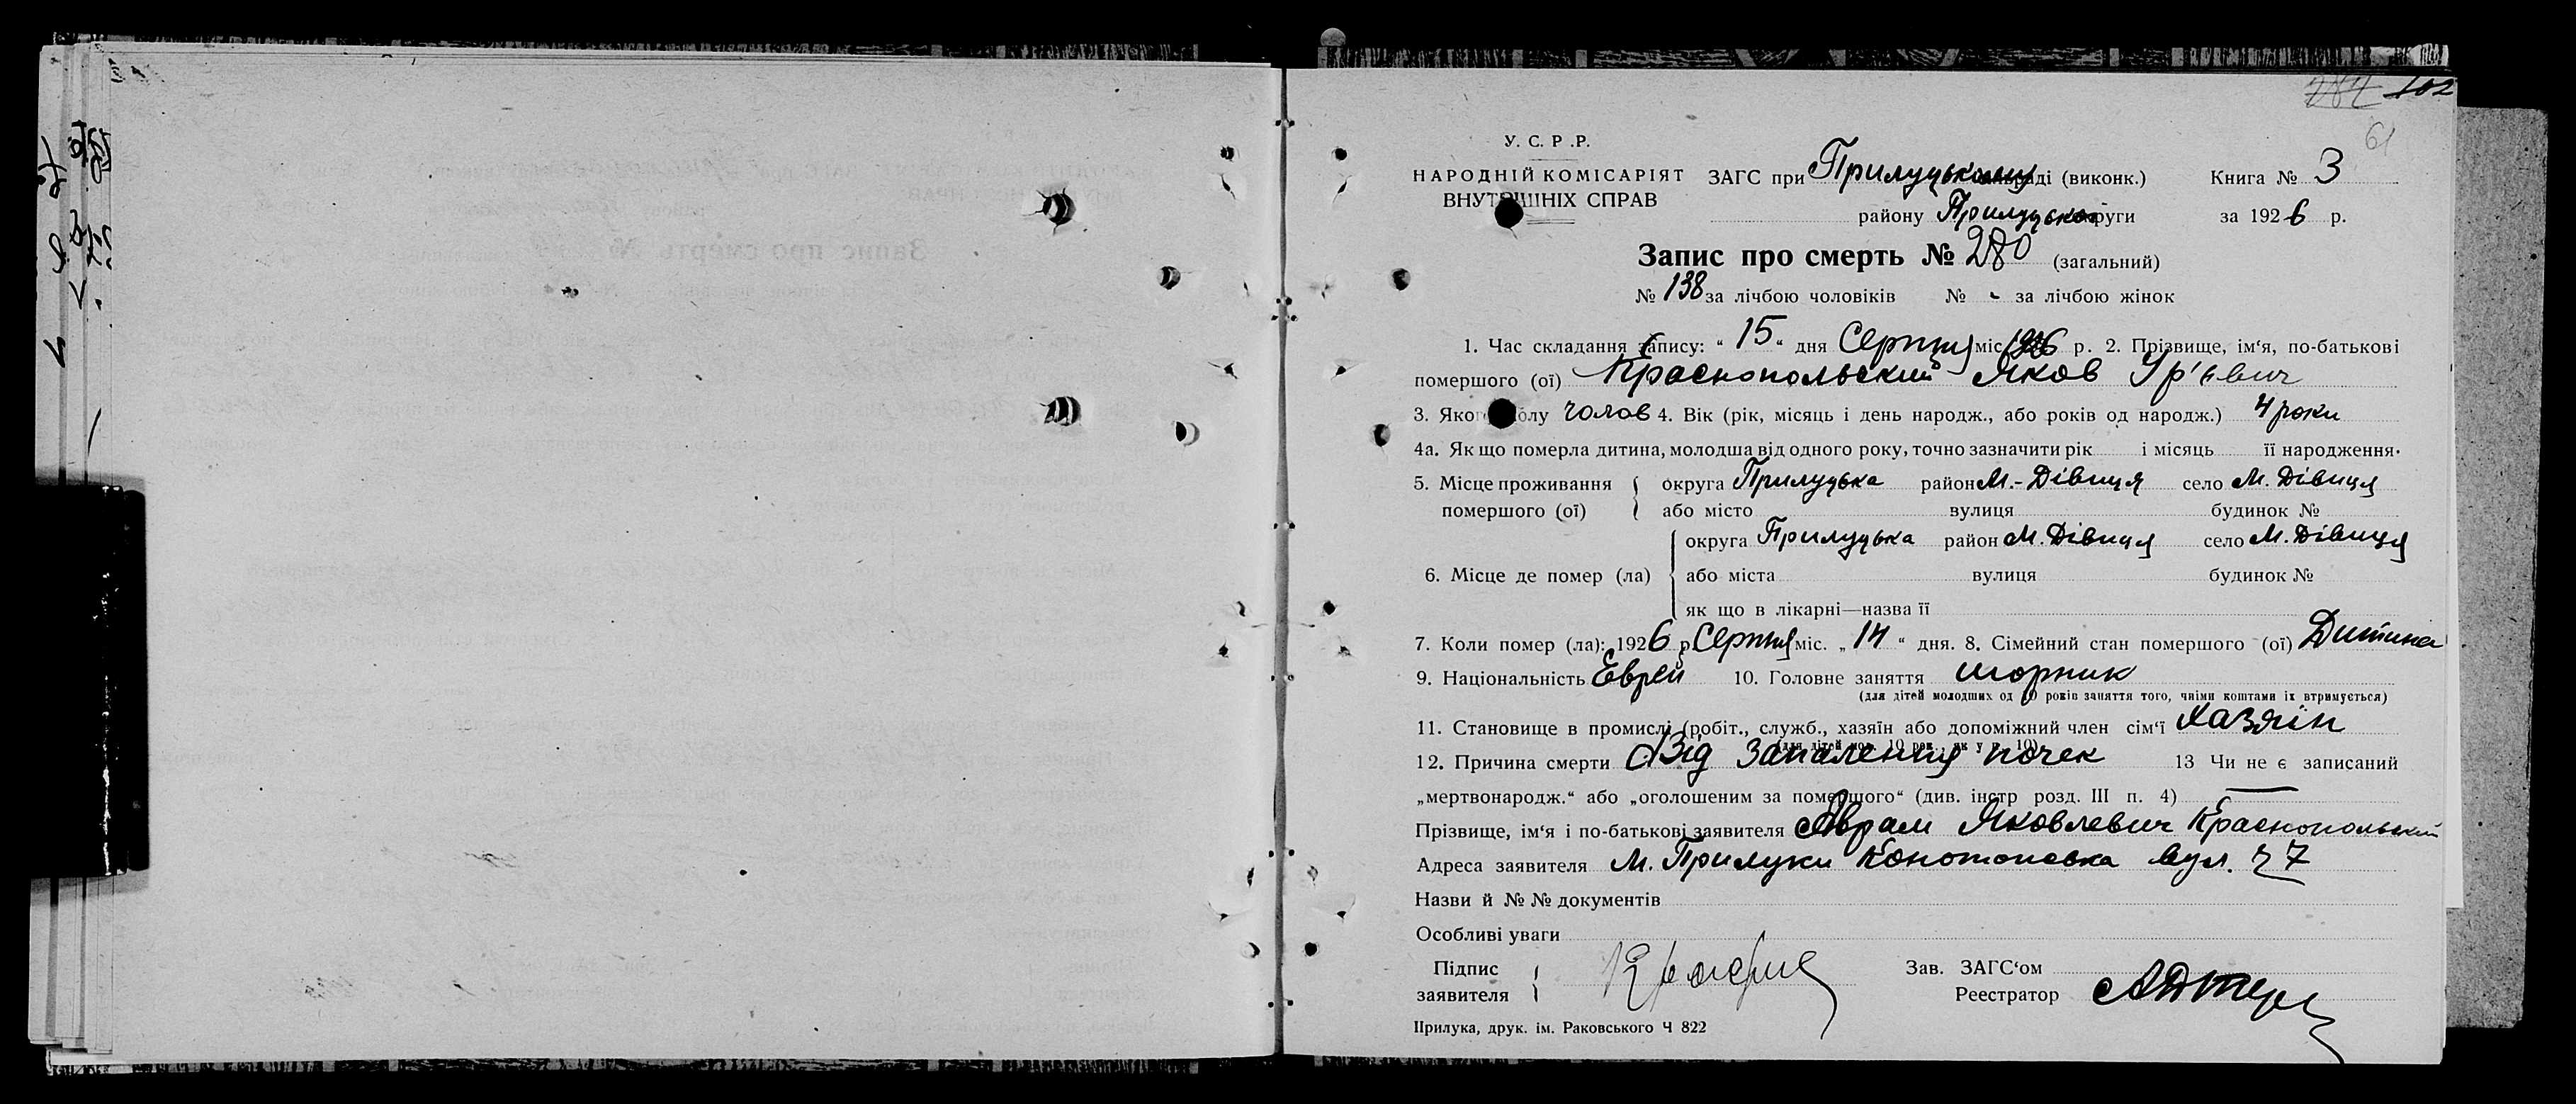 282 102
61
У. С. Р .Р.
НАРОДНІЙ КОМІСАРІЯТ ЗАГС при Прилуцькому раді (виконк.) Книга № 3
ВНУТРІШНІХ СПРАВ району Прилуцької округи за 1926 р.
Запис про смерть № 280 (загальний)
№ 138 за лічбою чоловіків № - за лічбою жінок
1. Час складання запису: “ 15 “ дня Серпня міс. 1926 р. 2. Прізвище, ім‘я, по-батькові
помершого (ої) Краснопольский Яков Ур'євич
3. Якого полу чолов 4. Вік (рік, місяць і день народж., або років од народж.) 4 роки
4а. Як що померла дитина, молодша від одного року, точно зазначити рік і місяць її народження.
5. Місце проживання округа Прилуцька район М.-Дівиця село М. Дівиця
помершого (ої) або місто вулиця будинок №
округа Прилуцька район М. Дівиця село М. Дівиця
6. Місце де помер (ла) або міста вулиця будинок №
як що в лікарні—назва її
7. Коли помер (ла): 1926 р. Серпня міс. „ 14 “ дня. 8. Сімейний стан помершого (ої) Дитина
9. Національність Еврей 10. Головне заняття шорник
(для дітей молодших од 10 років заняття того, чиїми коштами їх втримується)
11. Становище в промислі (робіт., служб., хазяїн або допоміжний член сім‘ї Хазяїн
(для дітей мол. 10 рок., як у п. 10)
12. Причина смерти Від Запалення почек 13 Чи не є записаний
„мертвонародж.“ або „оголошеним за помершого“ (див. інстр розд. III п. 4) —
Прізвище, ім‘я і по-батькові заявителя Аврам Яковлевич Краснопольский
Адреса заявителя М. Прилуки Конотопська вул. ч 7
Назви й № № документів
Особливі уваги
Підпис Зав. ЗАГС‘ом
заявителя Реестратор
Прилука, друк. ім. Раковського Ч 822